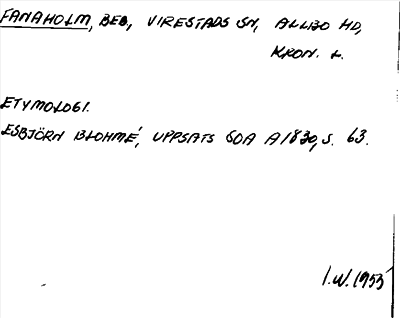 FANAHOLM, BEB, VIRESTADS SN, ALLBO HD,
KRON. L.
ETYMOLOGI.
ESBJÖRN BLOHMÉ, UPPSATS GOA A 1830, S. 63.
I.W. 1953